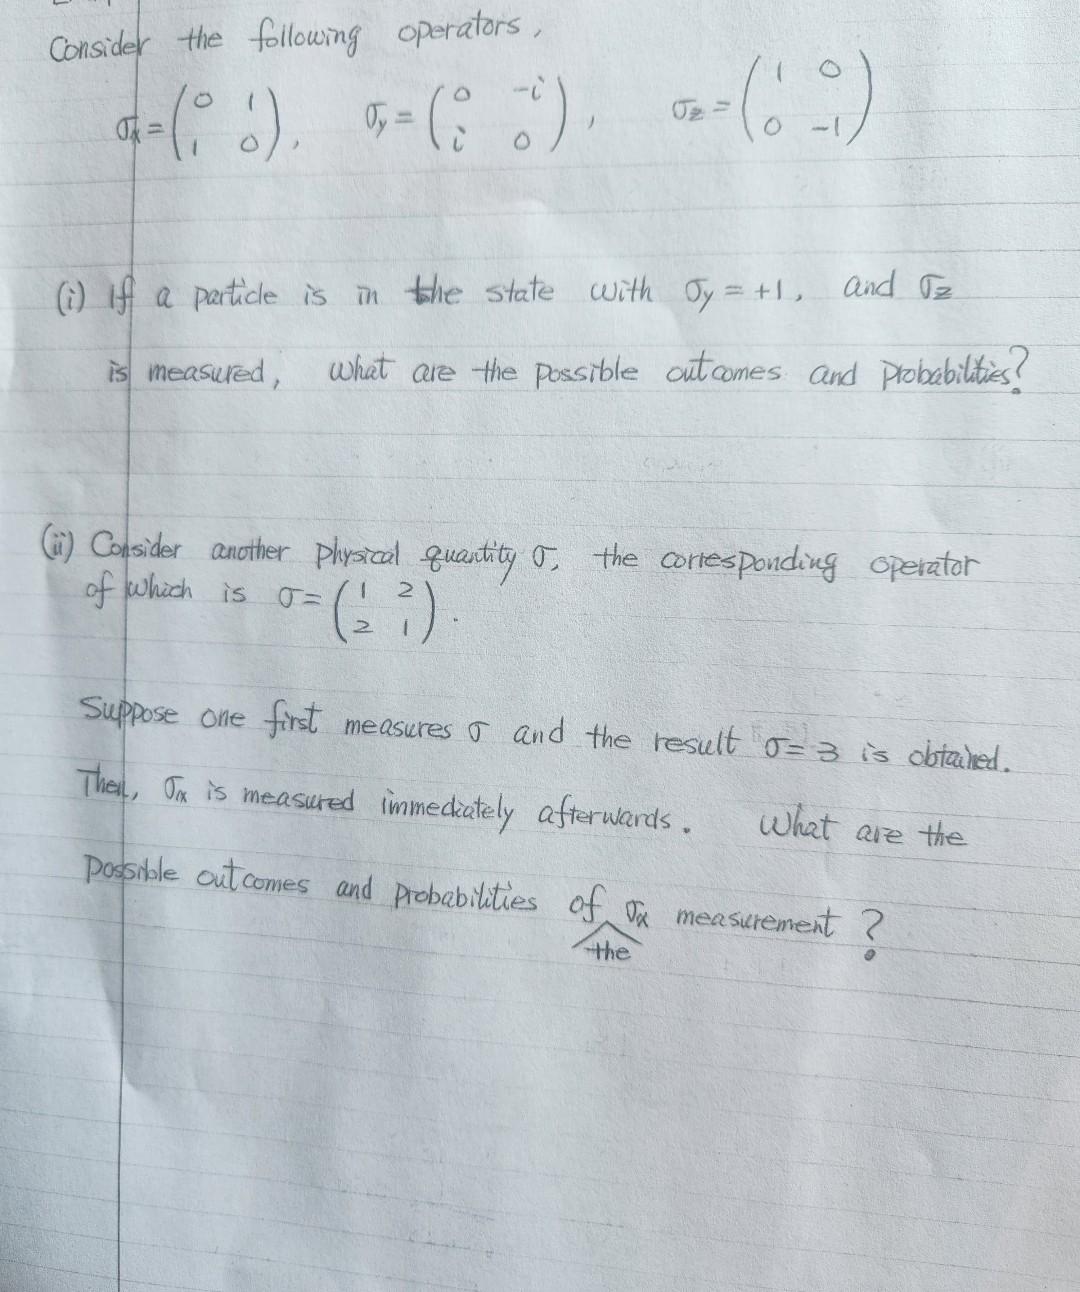 Consider the following operators,
σx = (0 1 1 0), σy = (0 -i i 0), σz = (1 0 0 -1)
(i) If a particle is in the state with σy = +1, and σz
is measured, what are the possible outcomes and probabilities?
(ii) Consider another physical quantity σ, the corresponding operator
of which is σ = (1 2 2 1).
Suppose one first measures σ and the result σ = 3 is obtained.
Then, σx is measured immediately afterwards. What are the
possible outcomes and probabilities of σx measurement?
the